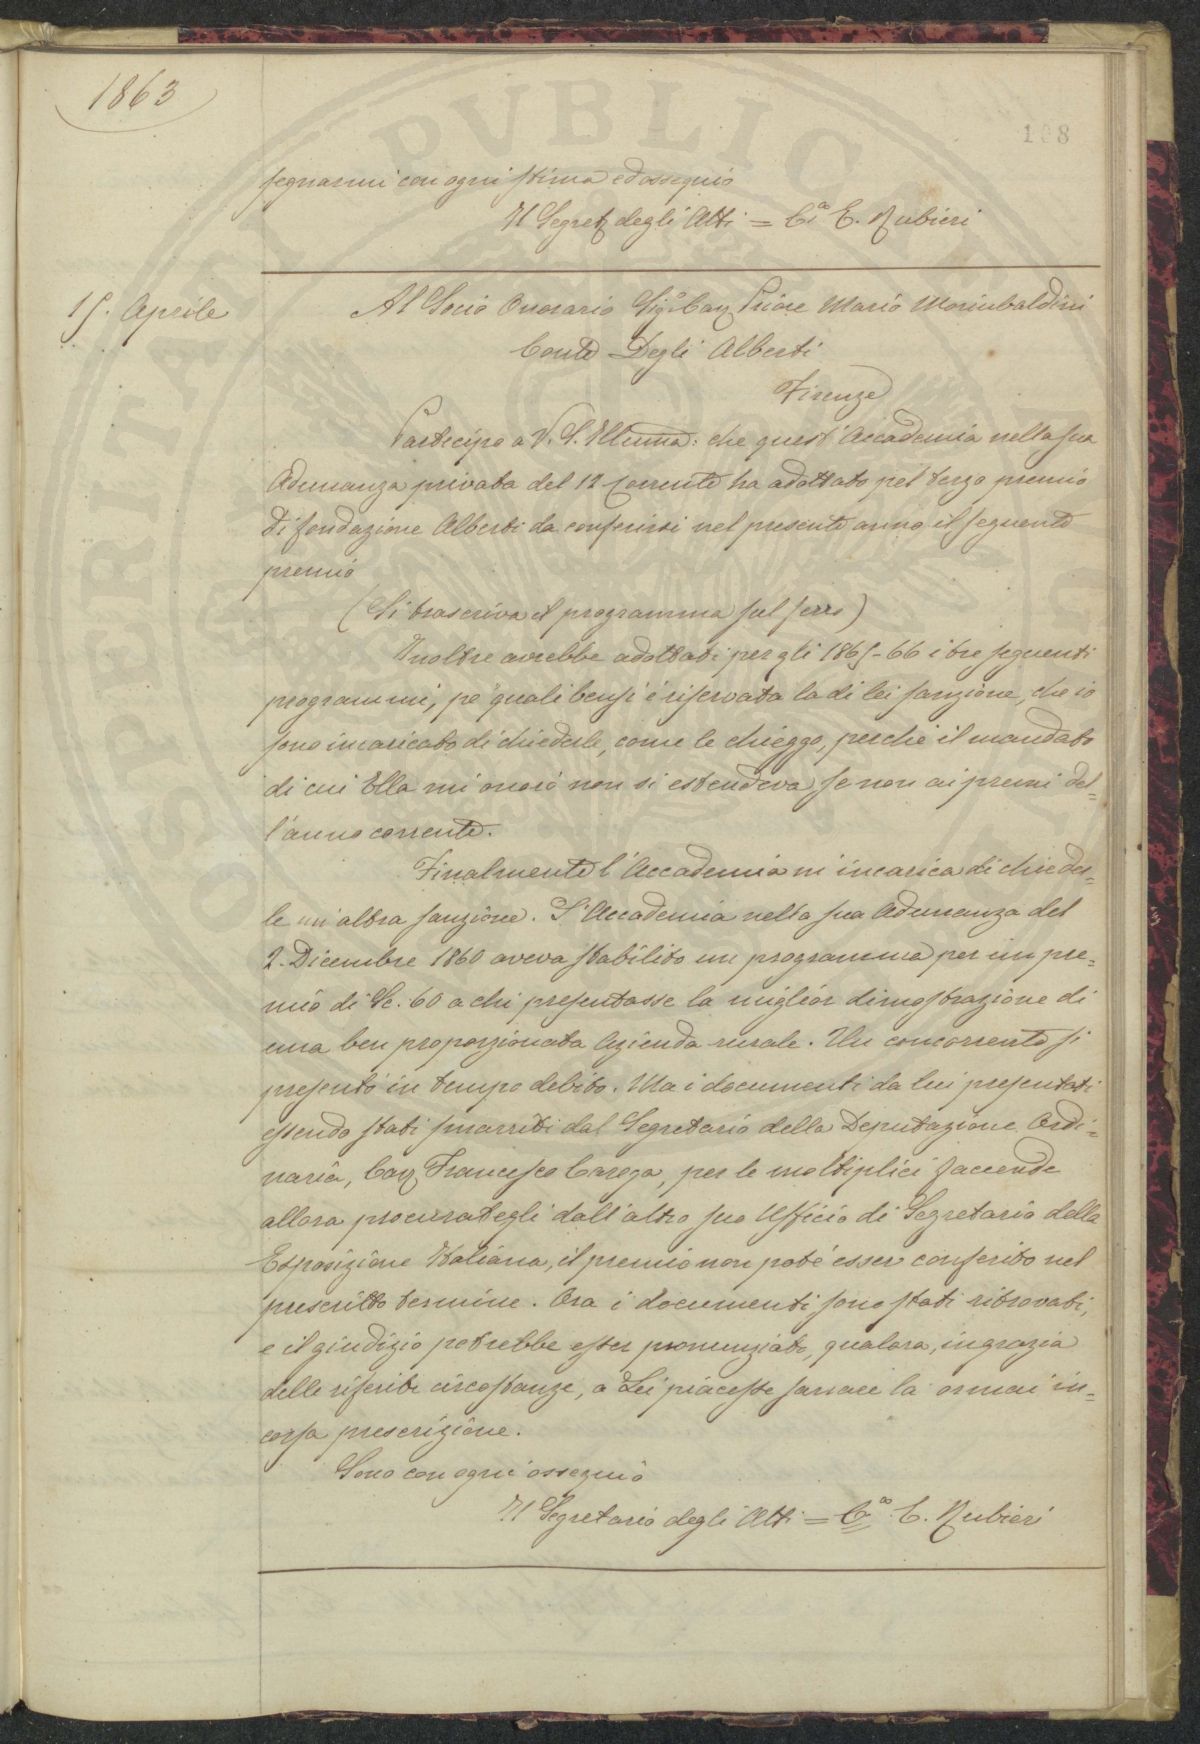 1863
108
segnarmi con ogni stima ed ossequio
Il Segret. degli Atti = C.e E. Rubieri
15. Aprile
Al Socio Onorario Sig. Cav. Priore Mario Moriubaldini
Conte Degli Alberti
Firenze
Partecipo a V. S. Illuma: che quest'Accademia nella sua
Adunanza privata del 12 corrente ha adottato pel terzo premio
di fondazione Alberti da conferirsi nel presente anno il seguente
premio
(Si trascriva il programma sul ferro)
Inoltre avrebbe adottati per gli 1865-66 i tre seguenti
programmi, pe' quali bensì è riservata la di lei sanzione, che io
sono incaricato di chiederle, come le chieggo, perchè il mandato
di cui Ella mi onorò non si estendeva se non ai premi del=
l'anno corrente.
Finalmente l'Accademia m'incarica di chieder=
le un'altra sanzione. L'Accademia nella sua Adunanza del
2. Dicembre 1860 aveva stabilito un programma per un pre=
mio di Sc. 60 a chi presentasse la miglior dimostrazione di
una ben proporzionata Azienda rurale. Un concorrente si
presentò in tempo debito. Ma i documenti da lui presentati
essendo stati smarriti dal Segretario della Deputazione Ordi=
naria, Cav. Francesco Carega, per le moltiplici faccende
allora procurategli dall'altro suo Ufficio di Segretario della
Esposizione Italiana, il premio non potè esser conferito nel
prescritto termine. Ora i documenti sono stati ritrovati,
e il giudizio potrebbe esser pronunziato, qualora, in grazia
delle riferite circostanze, a Lei piacesse sanare la ormai in=
corsa prescrizione.
Sono con ogni ossequio
Il Segretario degli Atti = C.e E. Rubieri